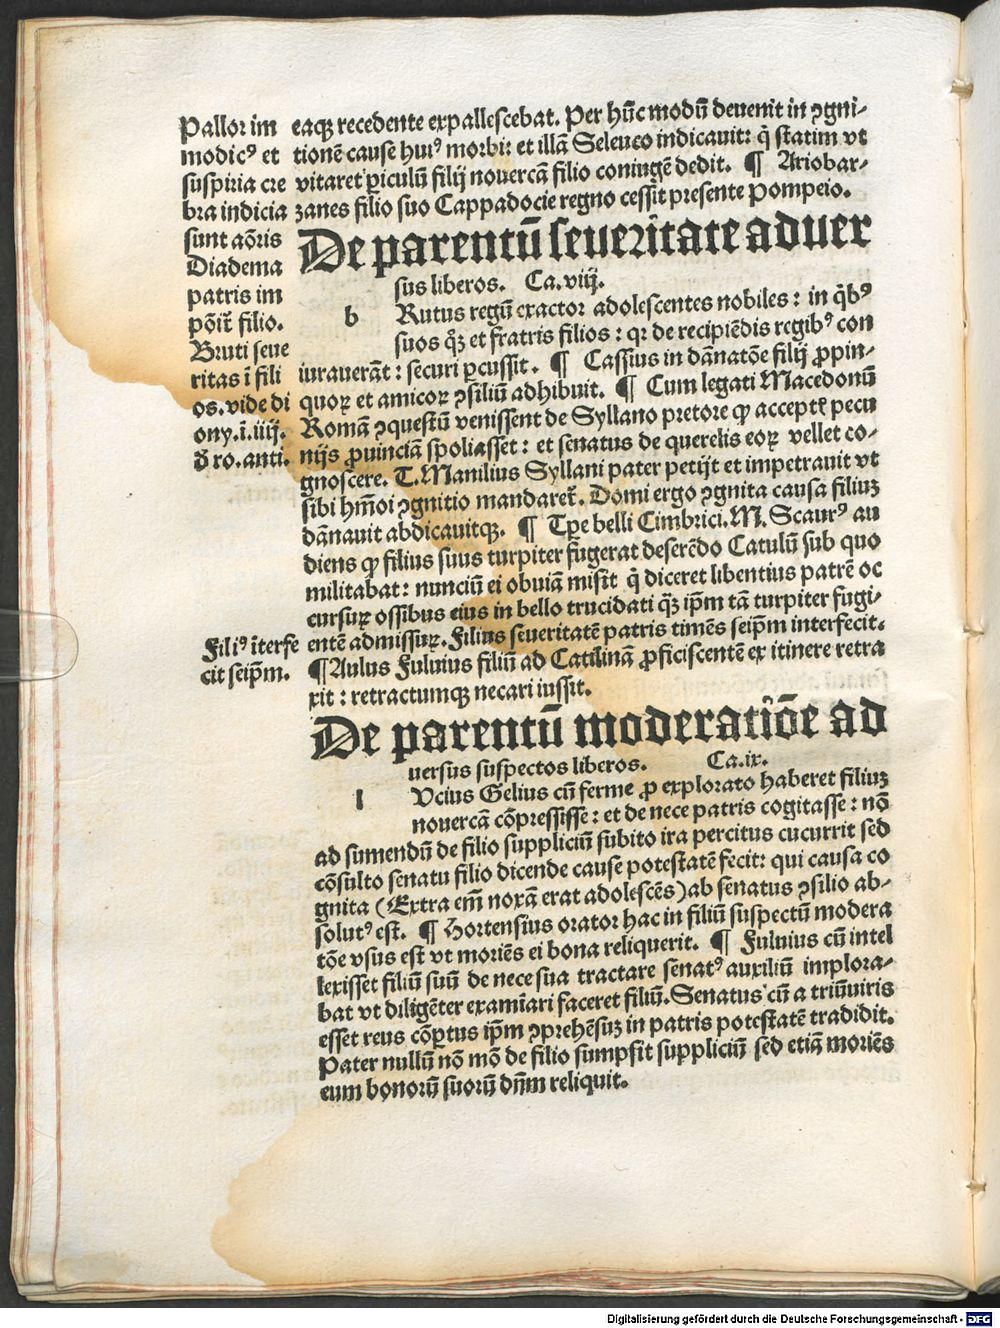 Pallor im
modicꝰ et
suspiria cre
bra indicia
sunt aōris
Diadema
patris im
pōit̄ filio.
Bruti seue
ritas ī fili
os. vide di
ony. i. iiij.
d̄ ro. anti.
Filiꝰ īterfe
cit seip̄m.
eaqꝫ recedente expallescebat. Per hūc modū deuenit in ꝯgni-
tionē cause huiꝰ morbi: et illā Seleuco indicauit: q̄ statim vt
vitaret ꝑiculū filij nouercā filio coniugē dedit. ¶ Ariobar-
zanes filio suo Cappadocie regno cessit presente Pompeio.
De parentū seueritate aduer
sus liberos. Ca. viij.
b Rutus regū exactor adolescentes nobiles: in q̄bꝰ
suos q̄ꝫ et fratris filios: qꝛ de recipiēdis regibꝰ con
iurauerāt: securi ꝑcussit. ¶ Cassius in dānatōe filij ꝓpin-
quoꝝ et amicoꝝ ꝯsiliū adhibuit. ¶ Cum legati Macedonū
Romā ꝯquestū venissent de Syllano pretore qꝫ accept̄ pecu
nijs ꝓuinciā spoliasset: et senatus de querelis eoꝝ vellet co-
gnoscere. T. Manilius Syllani pater petijt et impetrauit vt
sibi hm̄oi ꝯgnitio mandaret̄. Domi ergo ꝯgnita causa filiuꝫ
dānauit abdicauitqꝫ. ¶ Tꝑe belli Cimbrici. M. Scaurꝰ au
diens qꝫ filius suus turpiter fugerat deserēdo Catulū sub quo
militabat: nunciū ei obuiā misit q̄ diceret libentius patrē oc
cursuꝝ ossibus eius in bello trucidati q̄ꝫ ip̄m tā turpiter fugi-
entē admissuꝝ. Filius seueritatē patris timēs seip̄m interfecit.
¶ Aulus Fuluius filiū ad Catilinā ꝓficiscentē ex itinere retra
xit: retractumqꝫ necari iussit.
De parentū moderatiōe ad
uersus suspectos liberos. Ca. ix.
l Vcius Gelius cū ferme ꝓ explorato haberet filiuꝫ
nouercā cōpressisse: et de nece patris cogitasse: nō
ad sumendū de filio suppliciū subito ira percitus cucurrit sed
cōsulto senatu filio dicende cause potestatē fecit: qui causa co
gnita (Extra em̄ noxā erat adolescēs) ab senatus ꝯsilio ab-
solutꝰ est. ¶ Hortensius orator hac in filiū suspectū modera
tōe vsus est vt moriēs ei bona reliquerit. ¶ Fuluius cū intel
lexisset filiū suū de nece sua tractare senatꝰ auxiliū implora-
bat vt diligēter examīari faceret filiū. Senatus cū a triūuiris
esset reus cōꝑtus ip̄m ꝯprehēsuꝫ in patris potestatē tradidit.
Pater nullū nō mō de filio sumpsit suppliciū sed etiā moriēs
eum bonorū suorū dn̄m reliquit.
Digitalisierung gefördert durch die Deutsche Forschungsgemeinschaft - DFG